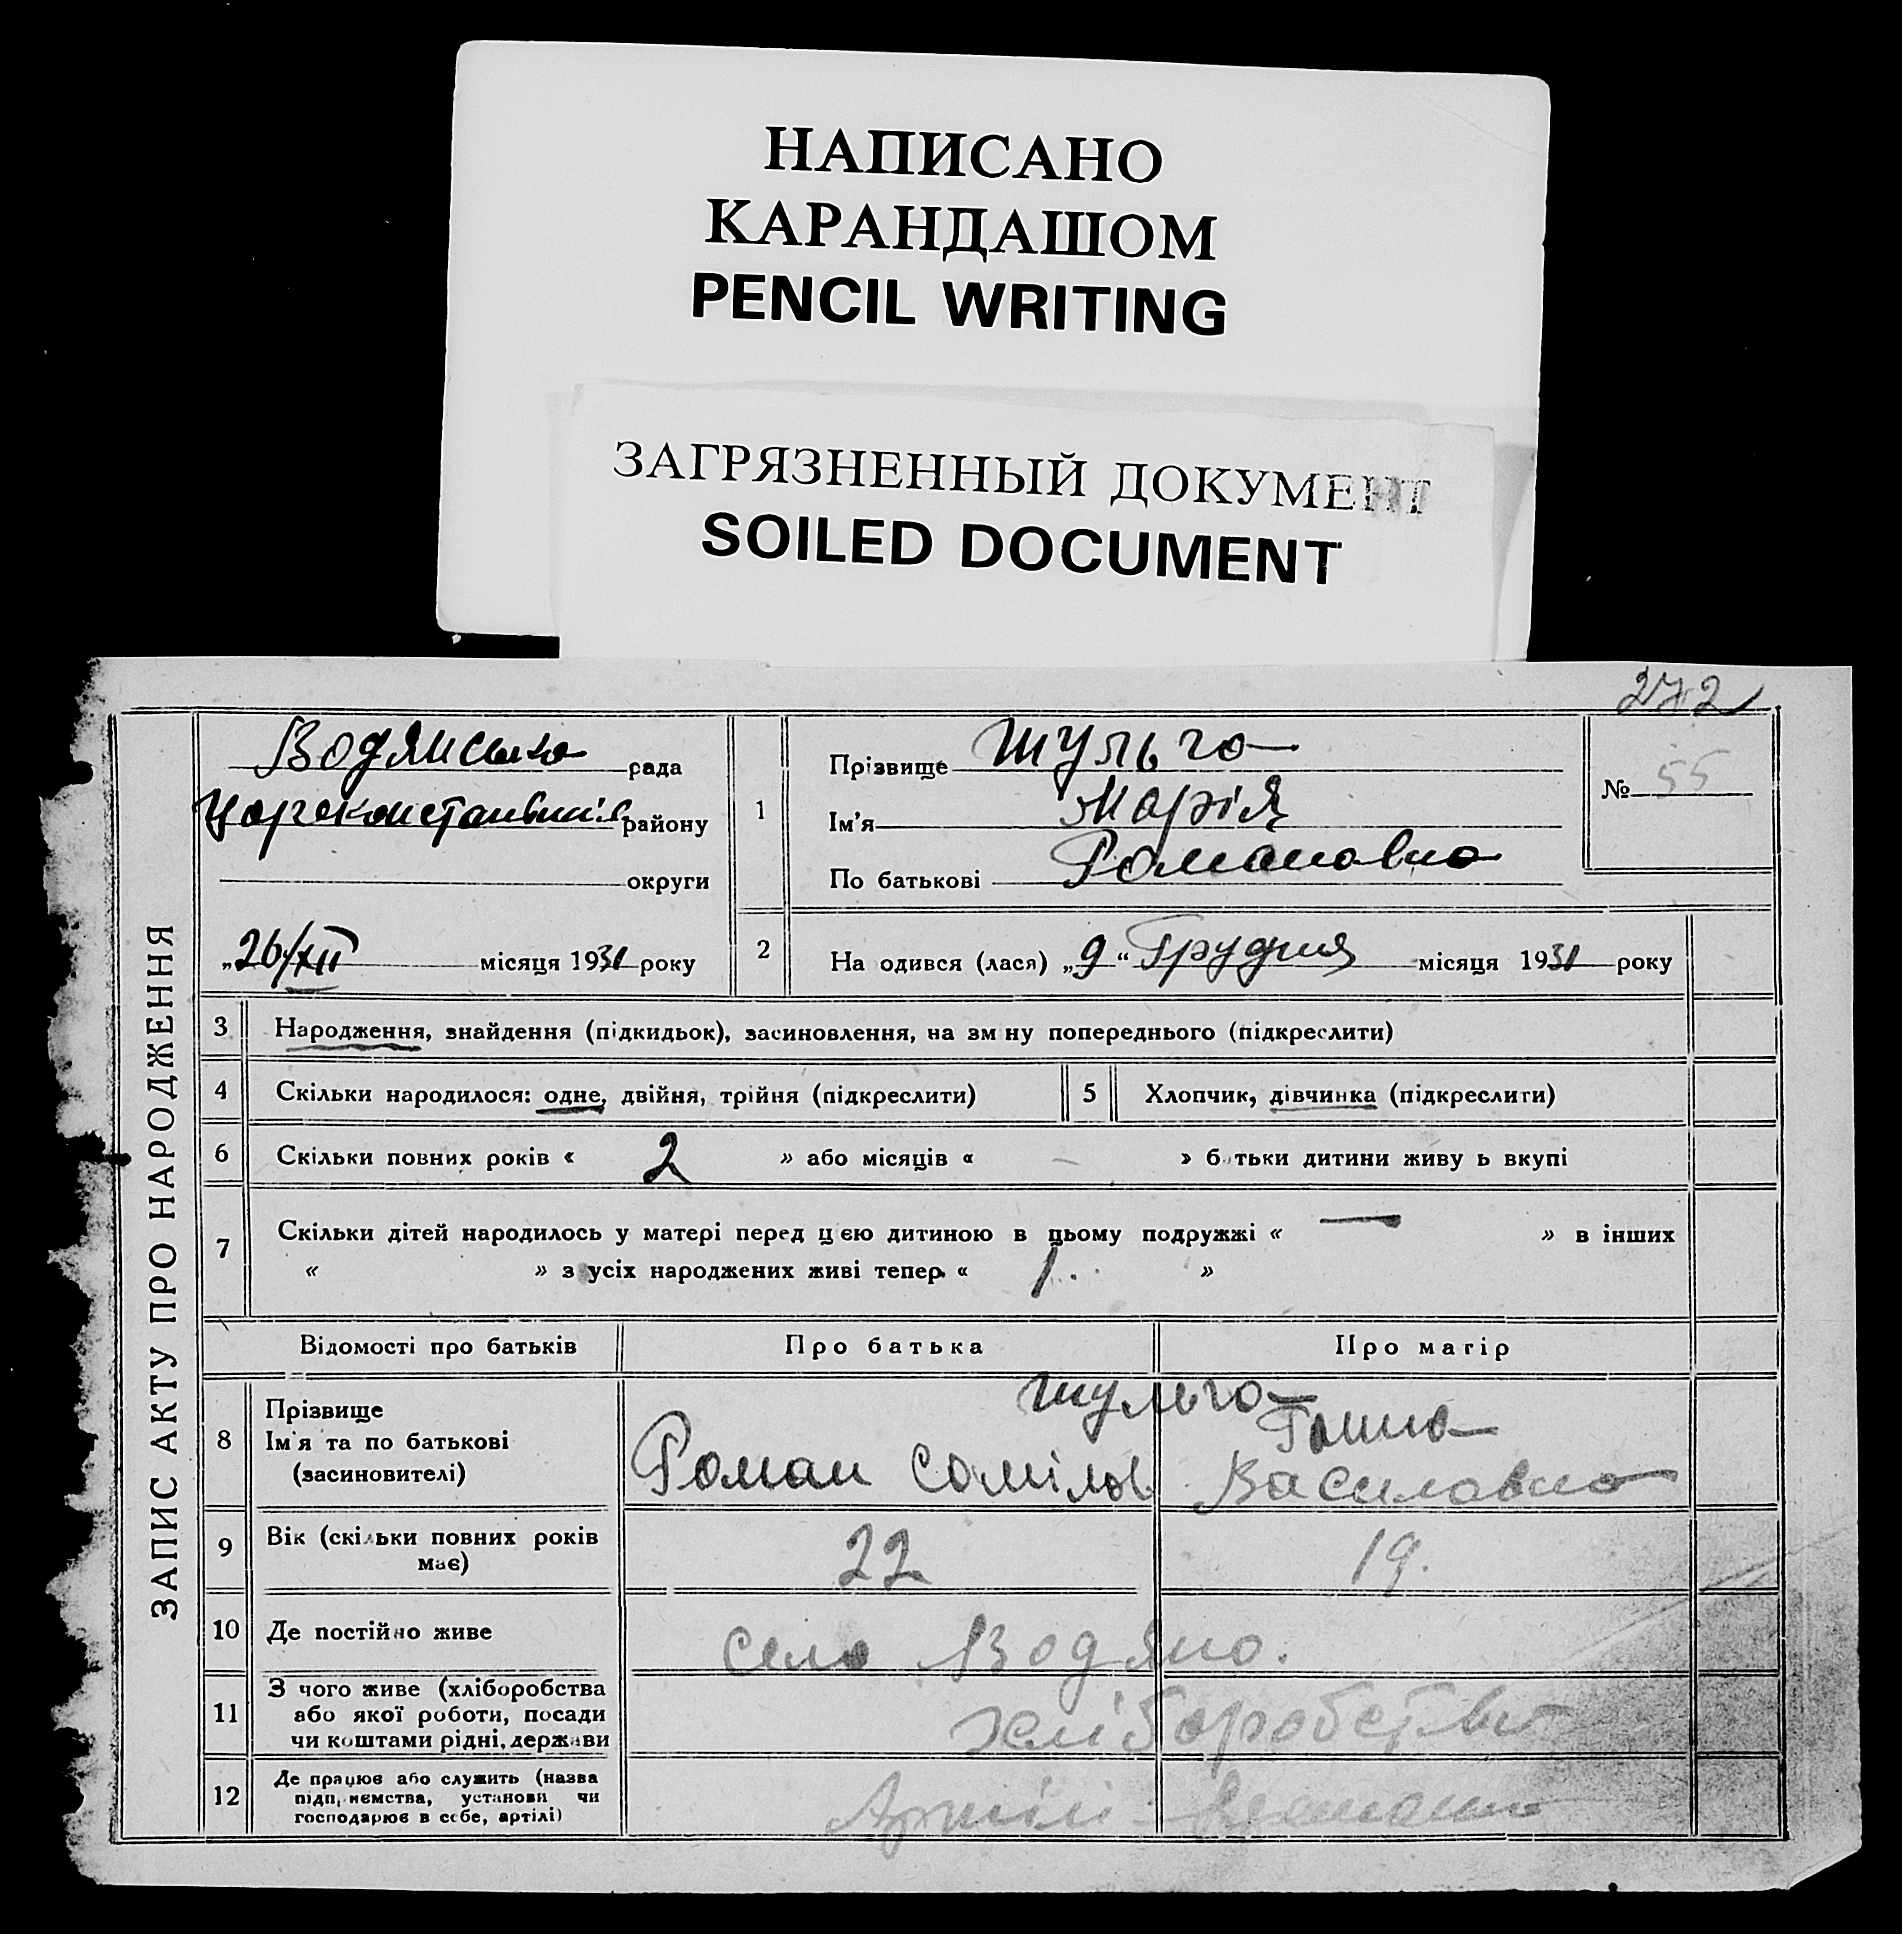 НАПИСАНО
КАРАНДАШОМ
PENCIL WRITING
ЗАГРЯЗНЕННЫЙ ДОКУМЕНТ
SOILED DOCUMENT
272
ЗАПИС АКТУ ПРО НАРОДЖЕННЯ
Водянська рада
району
округи
„26/XII місяця 1931 року
1
Прізвище Шульга
Ім'я Марія
По батькові Романовна
№ 55
2 На одився (лася) „9“ Грудня місяця 1931 року
3 Народження, знайдення (підкидьок), засиновлення, на зм ну попереднього (підкреслити)
4 Скільки народилося: одне, двійня, трійня (підкреслити) 5 Хлопчик, дівчинка (підкреслити)
6 Скільки повних років « 2 » або місяців « — » б тьки дитини живу ь вкупі
7 Скільки дітей народилось у матері перед цією дитиною в цьому подружжі « — » в інших
« » з усіх народжених живі тепер « 1 »
Відомості про батьків Про батька Про матір
Шульга
8 Прізвище
Ім'я та по батькові
(засиновителі)
Роман Ганна
Василовна
9 Вік (скільки повних років
має)
22 19.
10 Де постійно живе село Водяно.
11 З чого живе (хліборобства
або якої роботи, посади
чи коштами рідні, держави
хліборобство
12 Де працює або служить (назва
підп, иємства, установи чи
господарює в себе, артілі)
Артілі